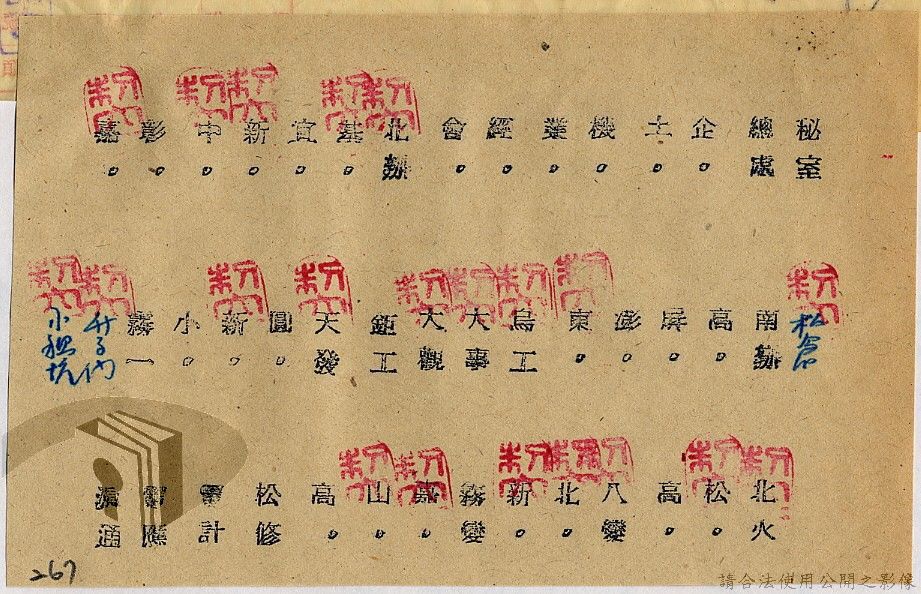 秘室
總處
企。
土。
機。
業。
經。
會。
北辦
基。
宜。
新。
中。
彰。
嘉。
松倉
南辦
高。
屏。
澎。
東。
烏工
大事
大觀
鉅工
天發
圓。
新。
小。
霧一
竹子門
小粗坑
北火
松。
高。
八變
北。
新。
霧變
嘉。
山。
高。
松修
電計
應
通
267
請合法使用公開之影像